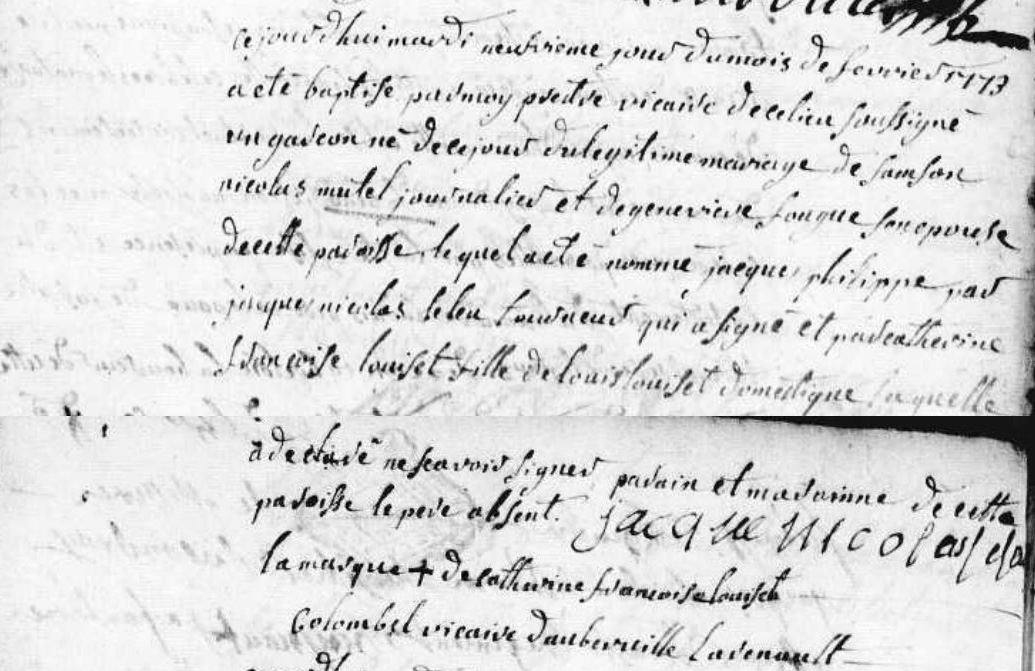 cejourdhui mardi neufvieme jour du mois de fevrier 1773
a été baptisé par moy pretre vicaire de ce lieu soussigné
un garcon né de ce jour du legitime mariage de samson
nicolas mutel journalier et de genevieve fouque son epouse
de cette paroisse lequel a eté nommé jacques philippe par
jacques nicolas leleu tourneur qui a signé et par catherine
francoise louiset fille de louis louiset domestique laquelle
a declaré ne scavoir signer parain et maraine de cette
paroisse le pere absent. jacque nicolas
la marque + de catherine francoise louiset
Colombel vicaire dauberville lavenault